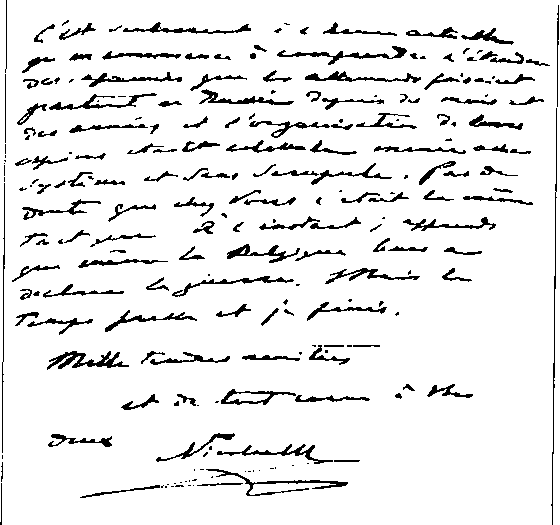 C'est seulement à l'heure actuelle
qu'on commence à comprendre l'étendue
des que les allemands faisaient
partout en Russie depuis des mois et
des années et l'organisation de leurs
espions était menée avec
système et sans scrupule. Pas de
doute que chez Vous c'était la même
À l'instant j'apprends
que même la Belgique leur a
déclaré la guerre. Mais le
temps presse et je finis.
Mille tendres amitiés
et de tout coeur à Vous
deux